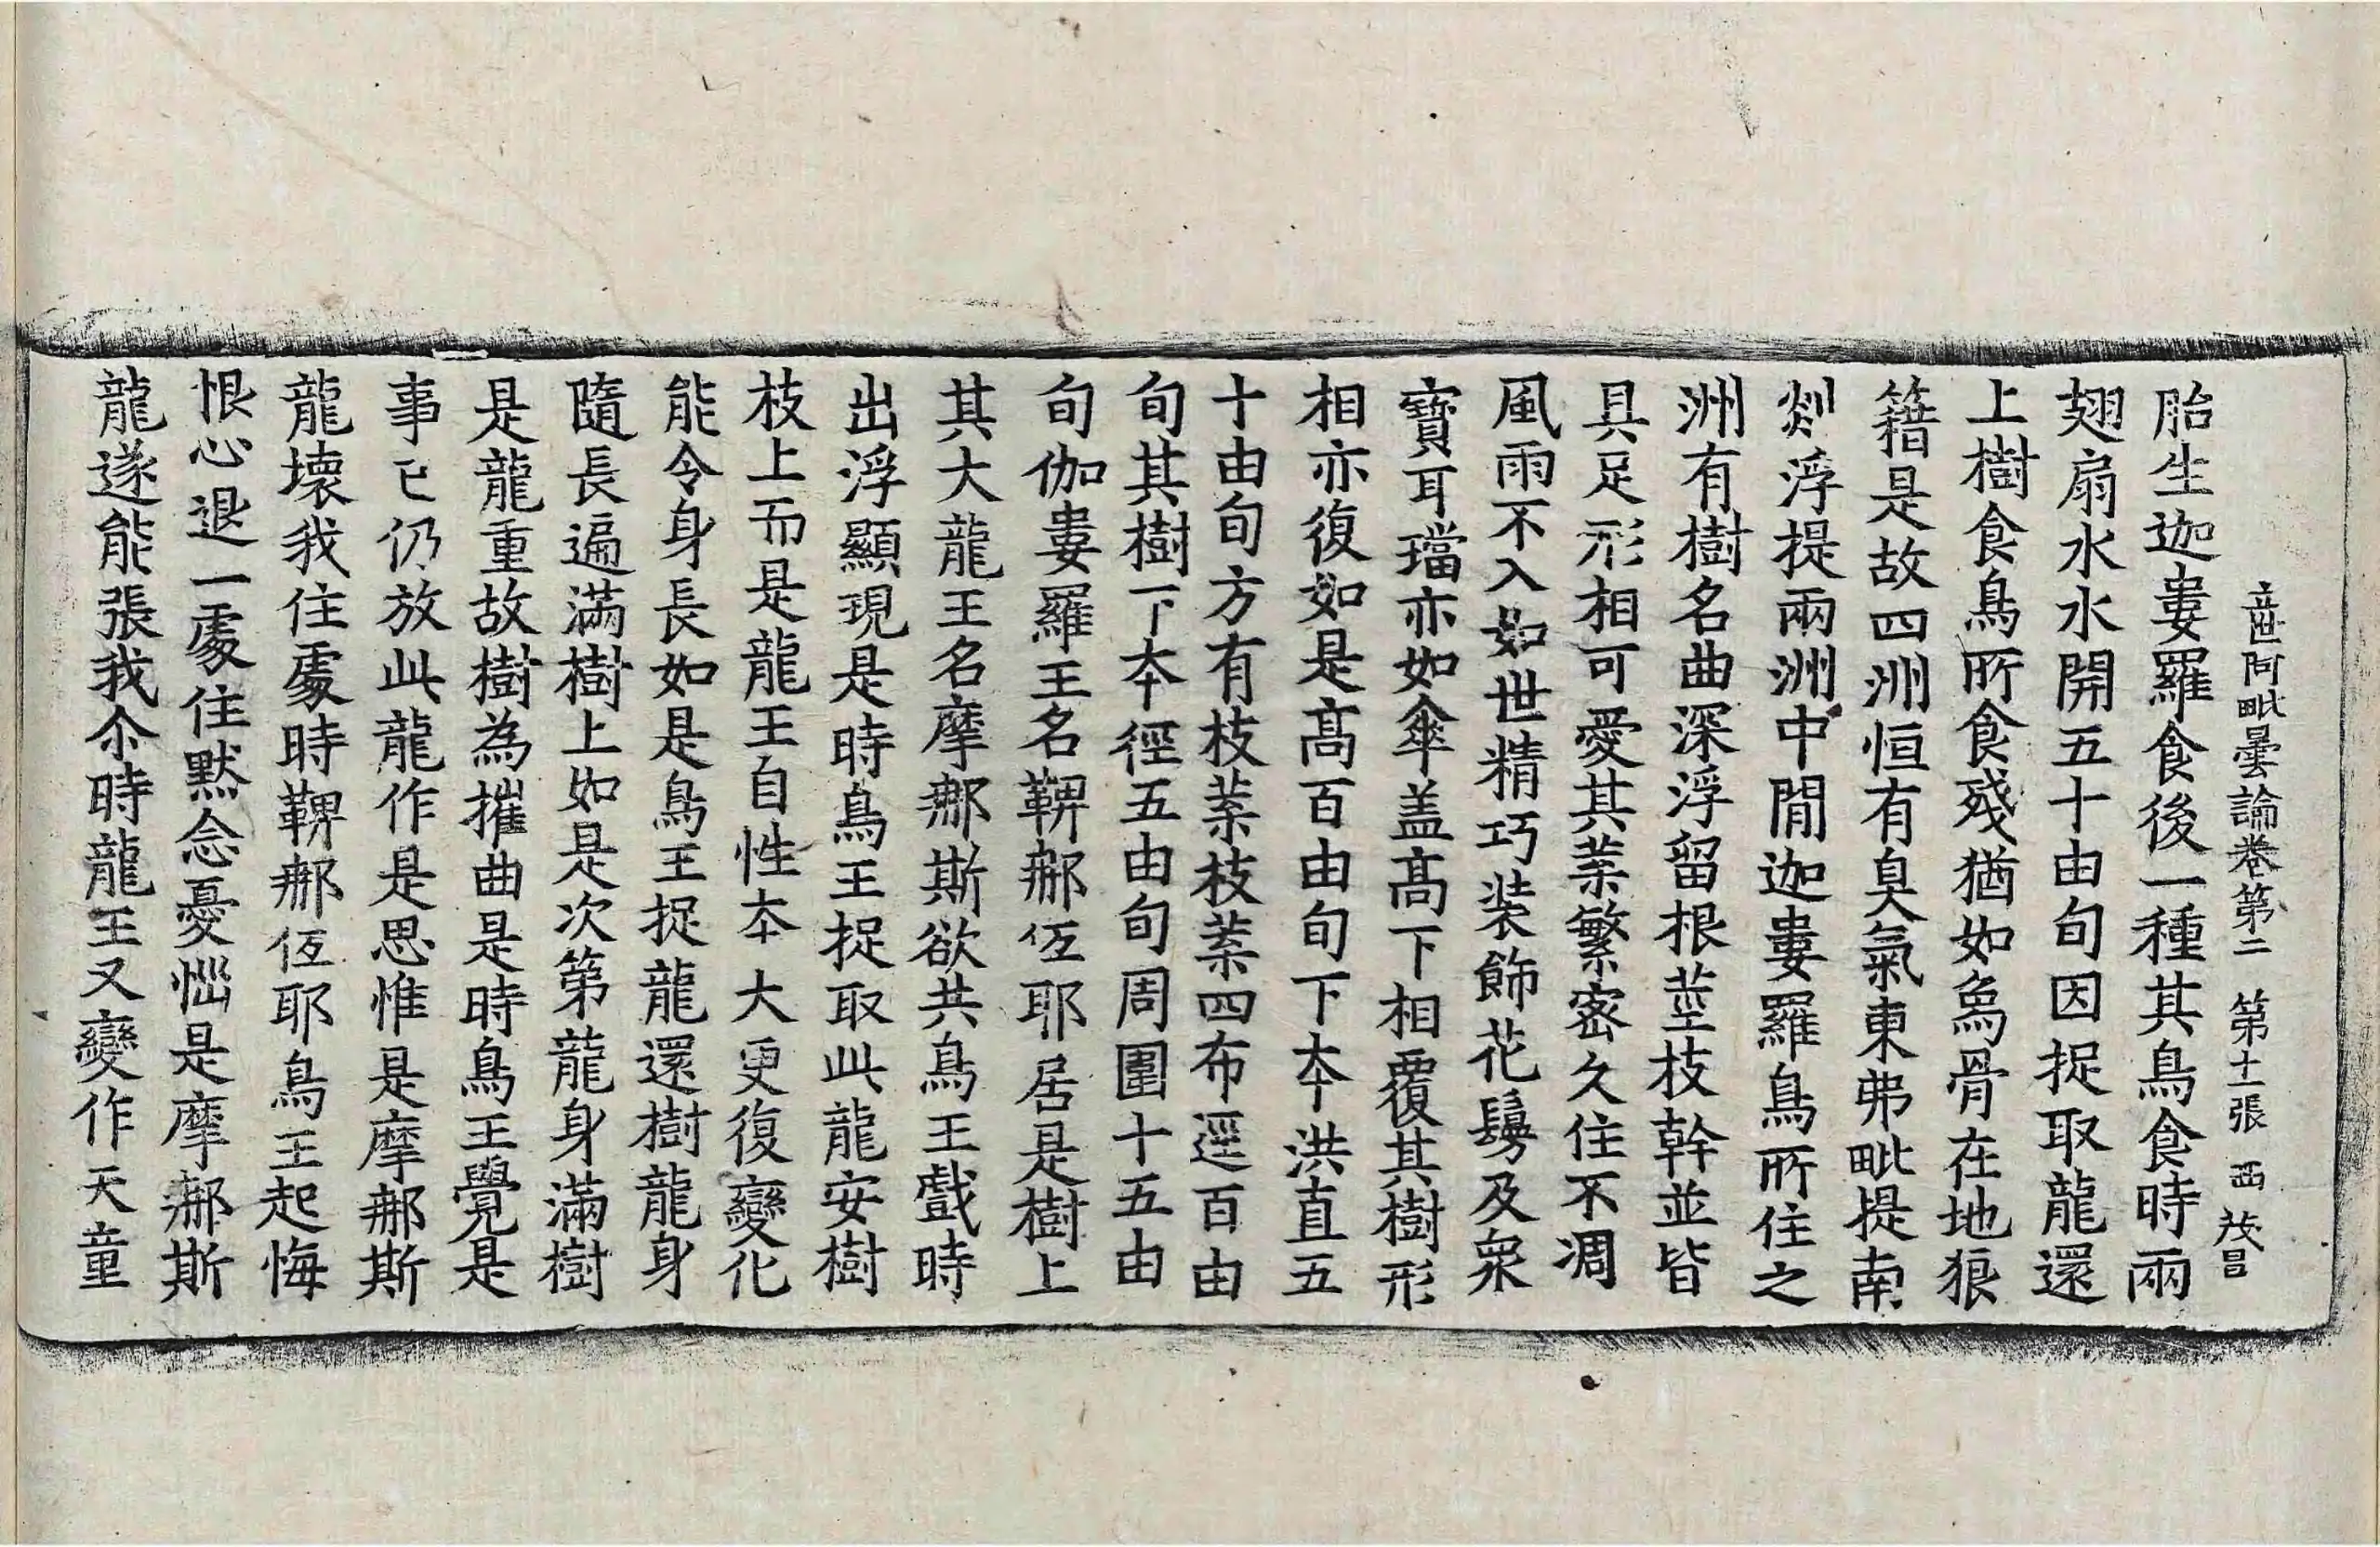 立世阿毗曇論卷第二 第十一張 西 茂昌
胎生迦婁羅食後一種其鳥食時兩
翅扇水水開五十由旬因捉取龍還
上樹食鳥所食殘猶如魚骨在地狼
籍是故四洲恒有臭氣東弗毗提南
剡浮提兩洲中間迦婁羅鳥所住之
洲有樹名曲深浮留根莖枝幹並皆
具足形相可愛其葉繁密久住不凋
風雨不入如世精巧装飾花鬘及衆
寶耳璫亦如傘盖高下相覆其樹形
相亦復如是髙百由旬下夲洪直五
十由旬方有枝葉枝葉四布逕百由
旬其樹下夲徑五由旬周圍十五由
旬伽婁羅王名鞞那低耶居是樹上
其大龍王名摩那斯欲共鳥王戲時
出浮顯現是時鳥王捉取此龍安樹
枝上而是龍王自性夲大更復變化
能令身長如是鳥王捉龍還樹龍身
隨長遍滿樹上如是次第龍身滿樹
是龍重故樹為摧曲是時鳥王覺是
事已仍放此龍作是思惟是摩那斯
龍壞我住處時鞞那低耶鳥王起悔
恨心退一處住黙念憂惱是摩那斯
龍遂能張我尒時龍王又變作天童